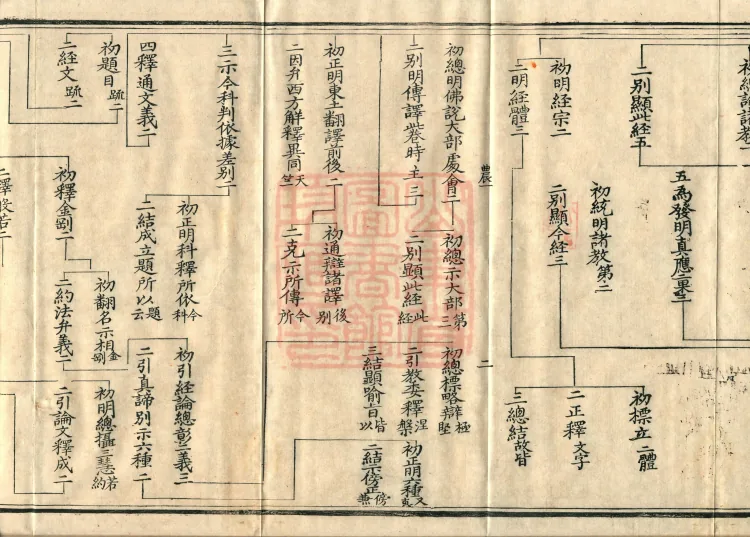 二別顯此經五
五為發明真應二果二
初統明諸教第二
初明經宗二
二別顯今經三
二明經體三
初標立二體
二正釋文字
三總結故皆
農
二
初總明佛說大部處會二
初總示大部第三
初總標略辯極堅
二別明傳譯此卷時主二
二別顯此經此經
二引教委釋涅槃
初正明六種又
三結顯喻旨皆以
二結示傍正傍兼
初正明東土翻譯前後二
初通辯諸譯後別
二因弁西方解釋異同天竺
二克示所傳今所
三示今科判依據差別二
初正明科釋所依今科
初引經論總彰三義三
四釋通文義二
二結成立題所以題云
二引真諦別示六種二
初題目疏二
初翻名示相金剛
初明總攝三慧若約
二經文疏二
初釋金剛二
二約法弁義二
二引論文釋成二